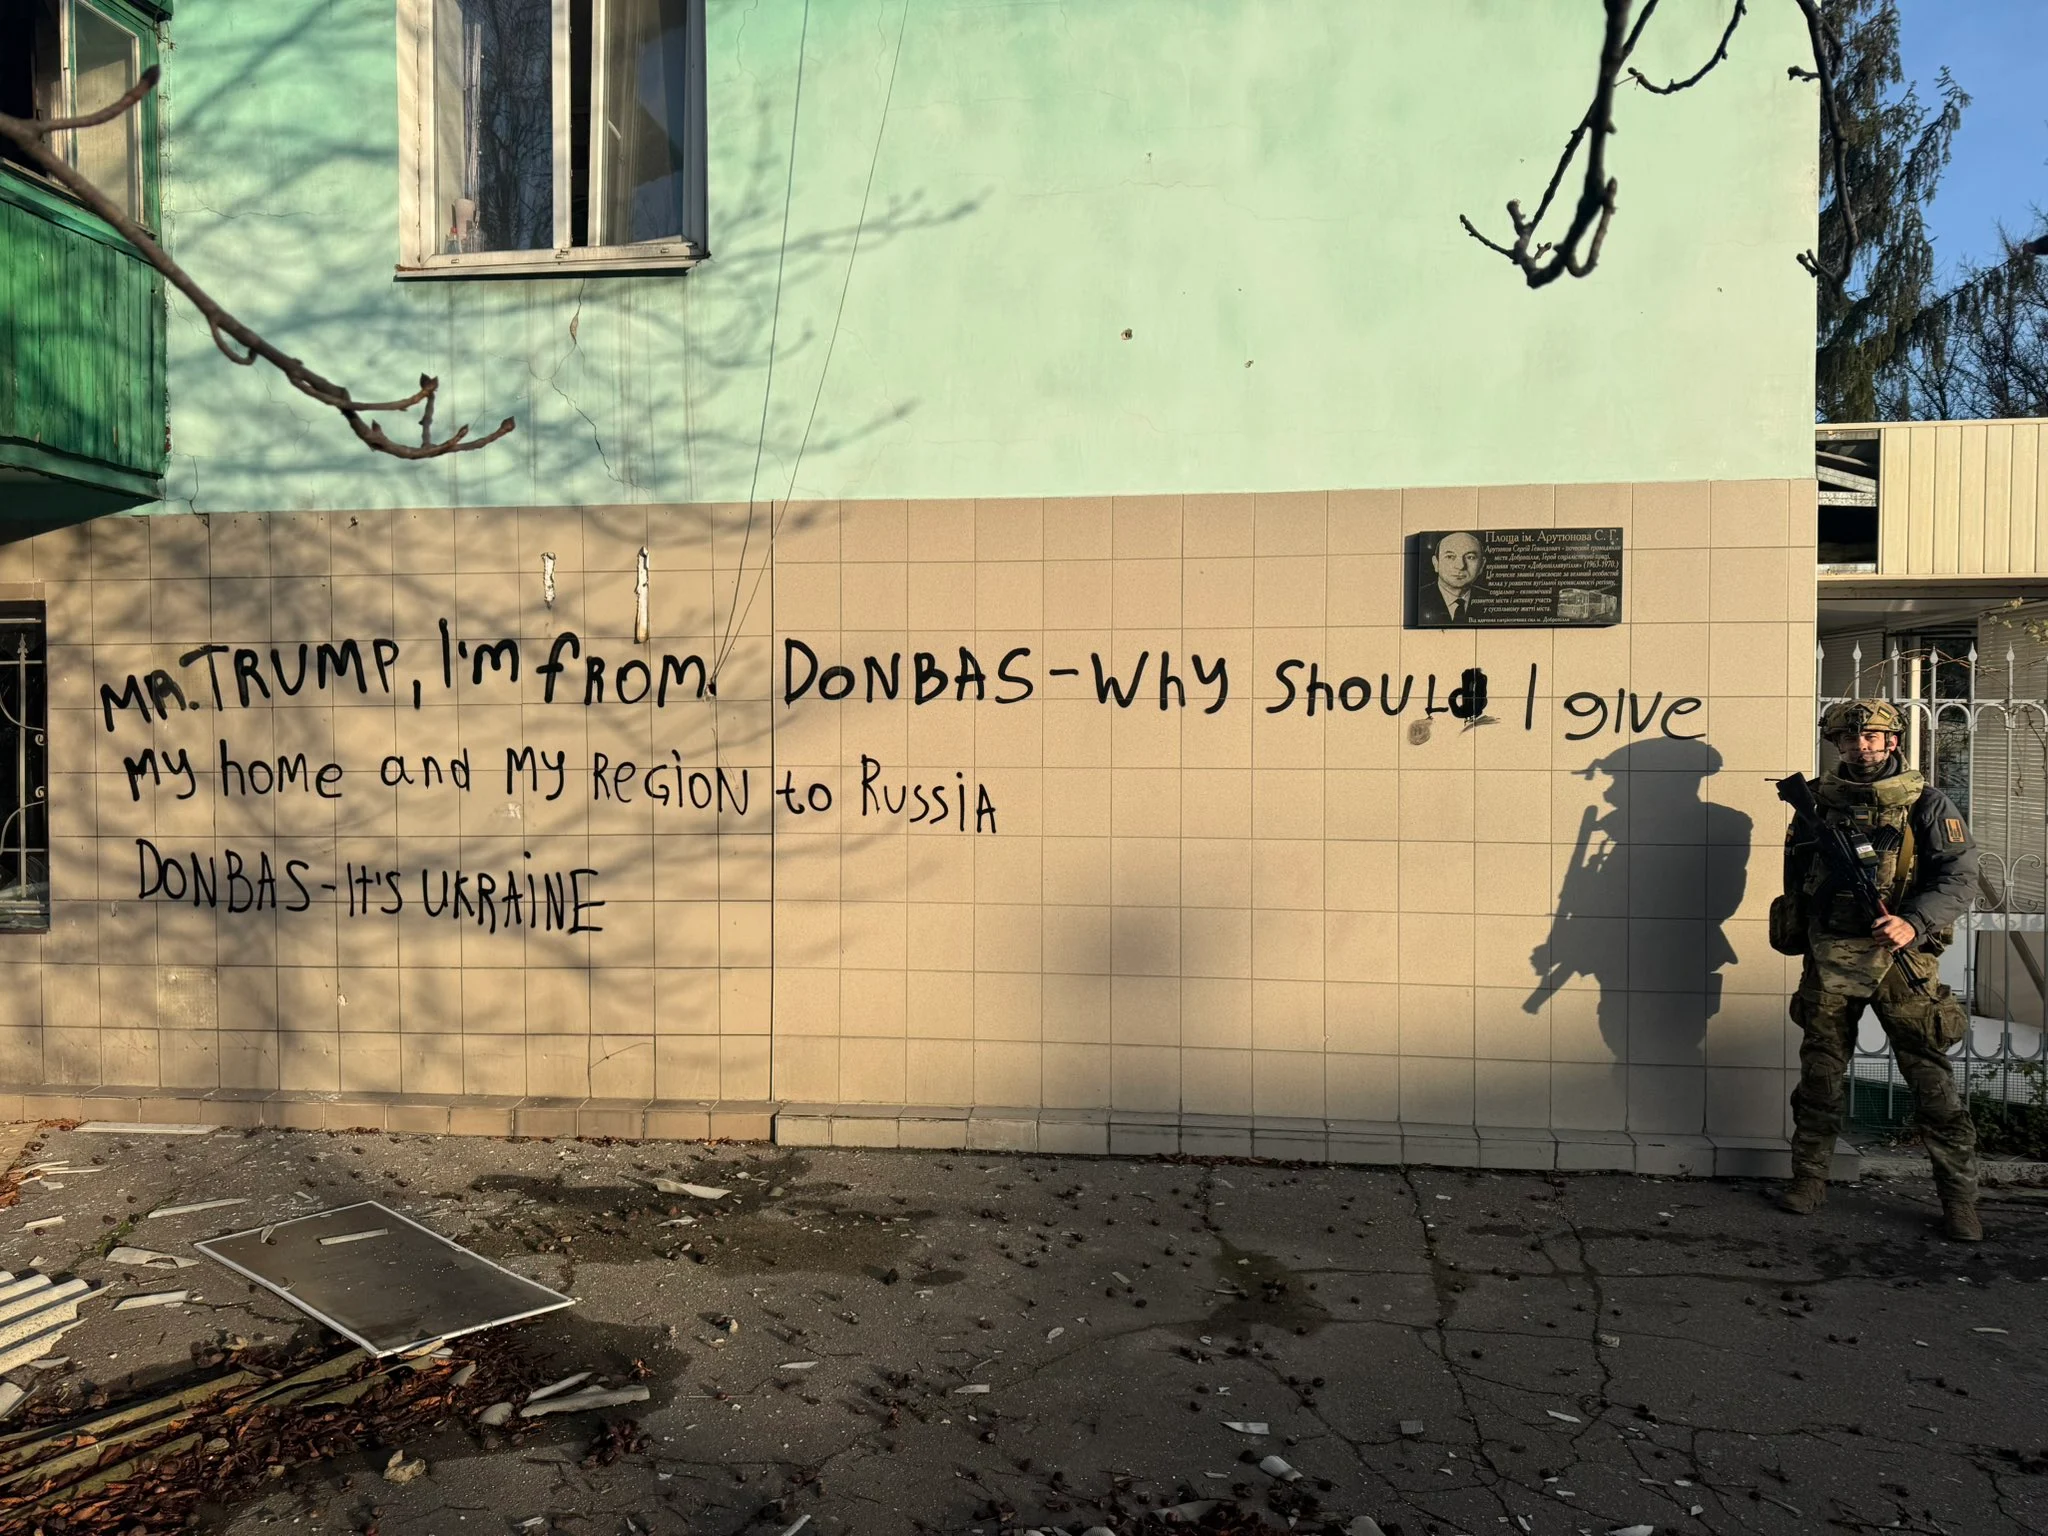 MR. TRUMP, I'M fROM. DONBAS - WhY ShOULd I gIVe
My hOMe and My ReGiON to RussiA
DONBAS - It'S UKRAiNE
Площа ім. Арутюнова С. Г.
Арутюнов Сергій Гевондович - почесний громадянин
міста Добропілля, Герой соціалістичної праці,
керівник тресту «Добропіллявугілля» (1963-1970.)
Це почесне звання присвоєне за великий особистий
вклад у розвиток вугільної промисловості регіону,
соціально - економічний
розвиток міста і активну участь
у суспільному житті міста.
Від вдячних
м. Добропілля